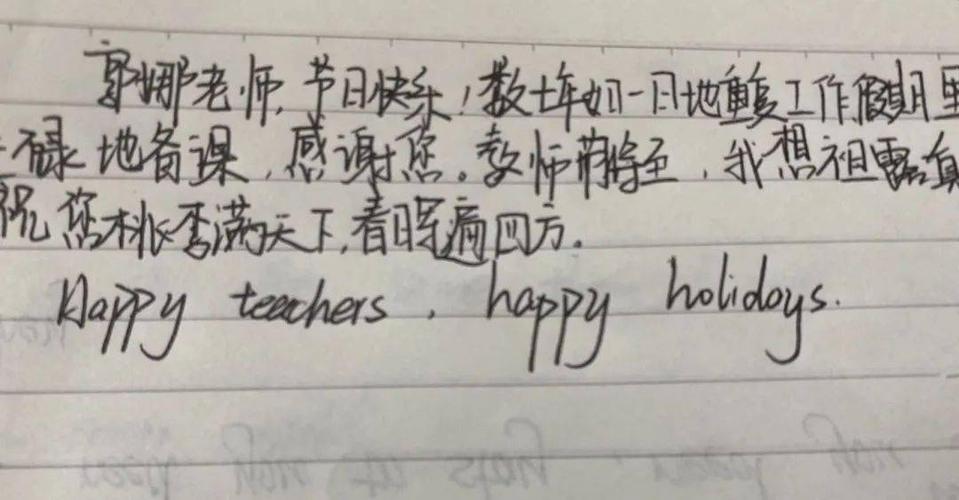 郭娜老师，节日快乐！数十年如一日地重复工作假期里
碌地备课，感谢您。教师节将至，我想祖露真
祝您桃李满天下，春晖遍四方。
Happy teachers, happy holidays.